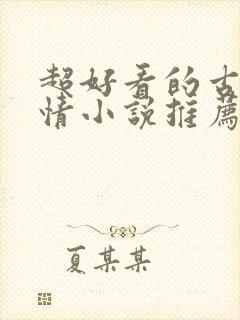 超好看的古
情小説推薦
夏某某